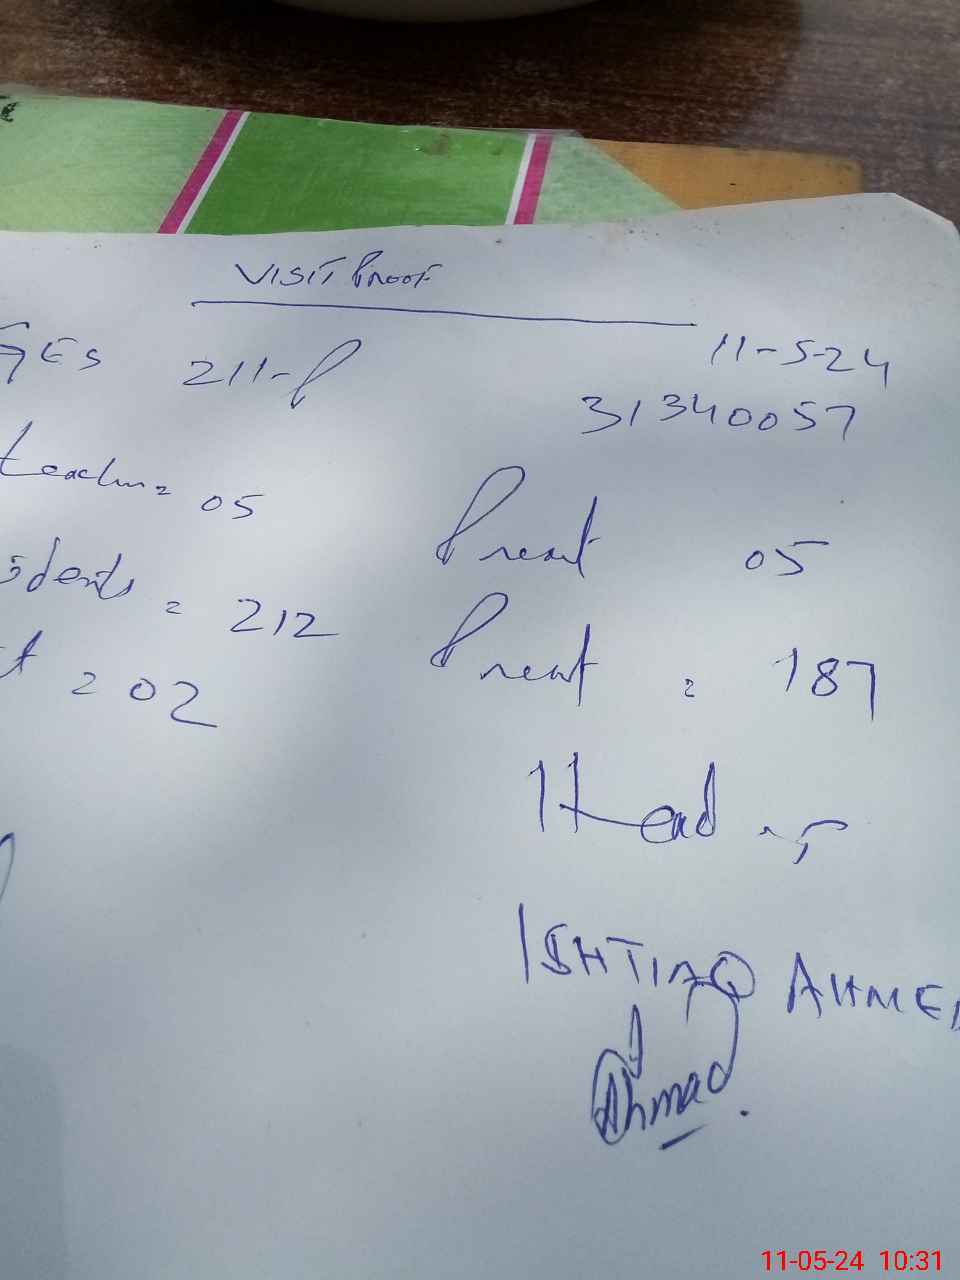 VISIT Proof
GES 211-P 11-5-24
31340057
teacher = 05 Present 05
idents = 212 Present = 187
t = 02
Head
ISHTIAQ AHMED
Ahmad
11-05-24 10:31